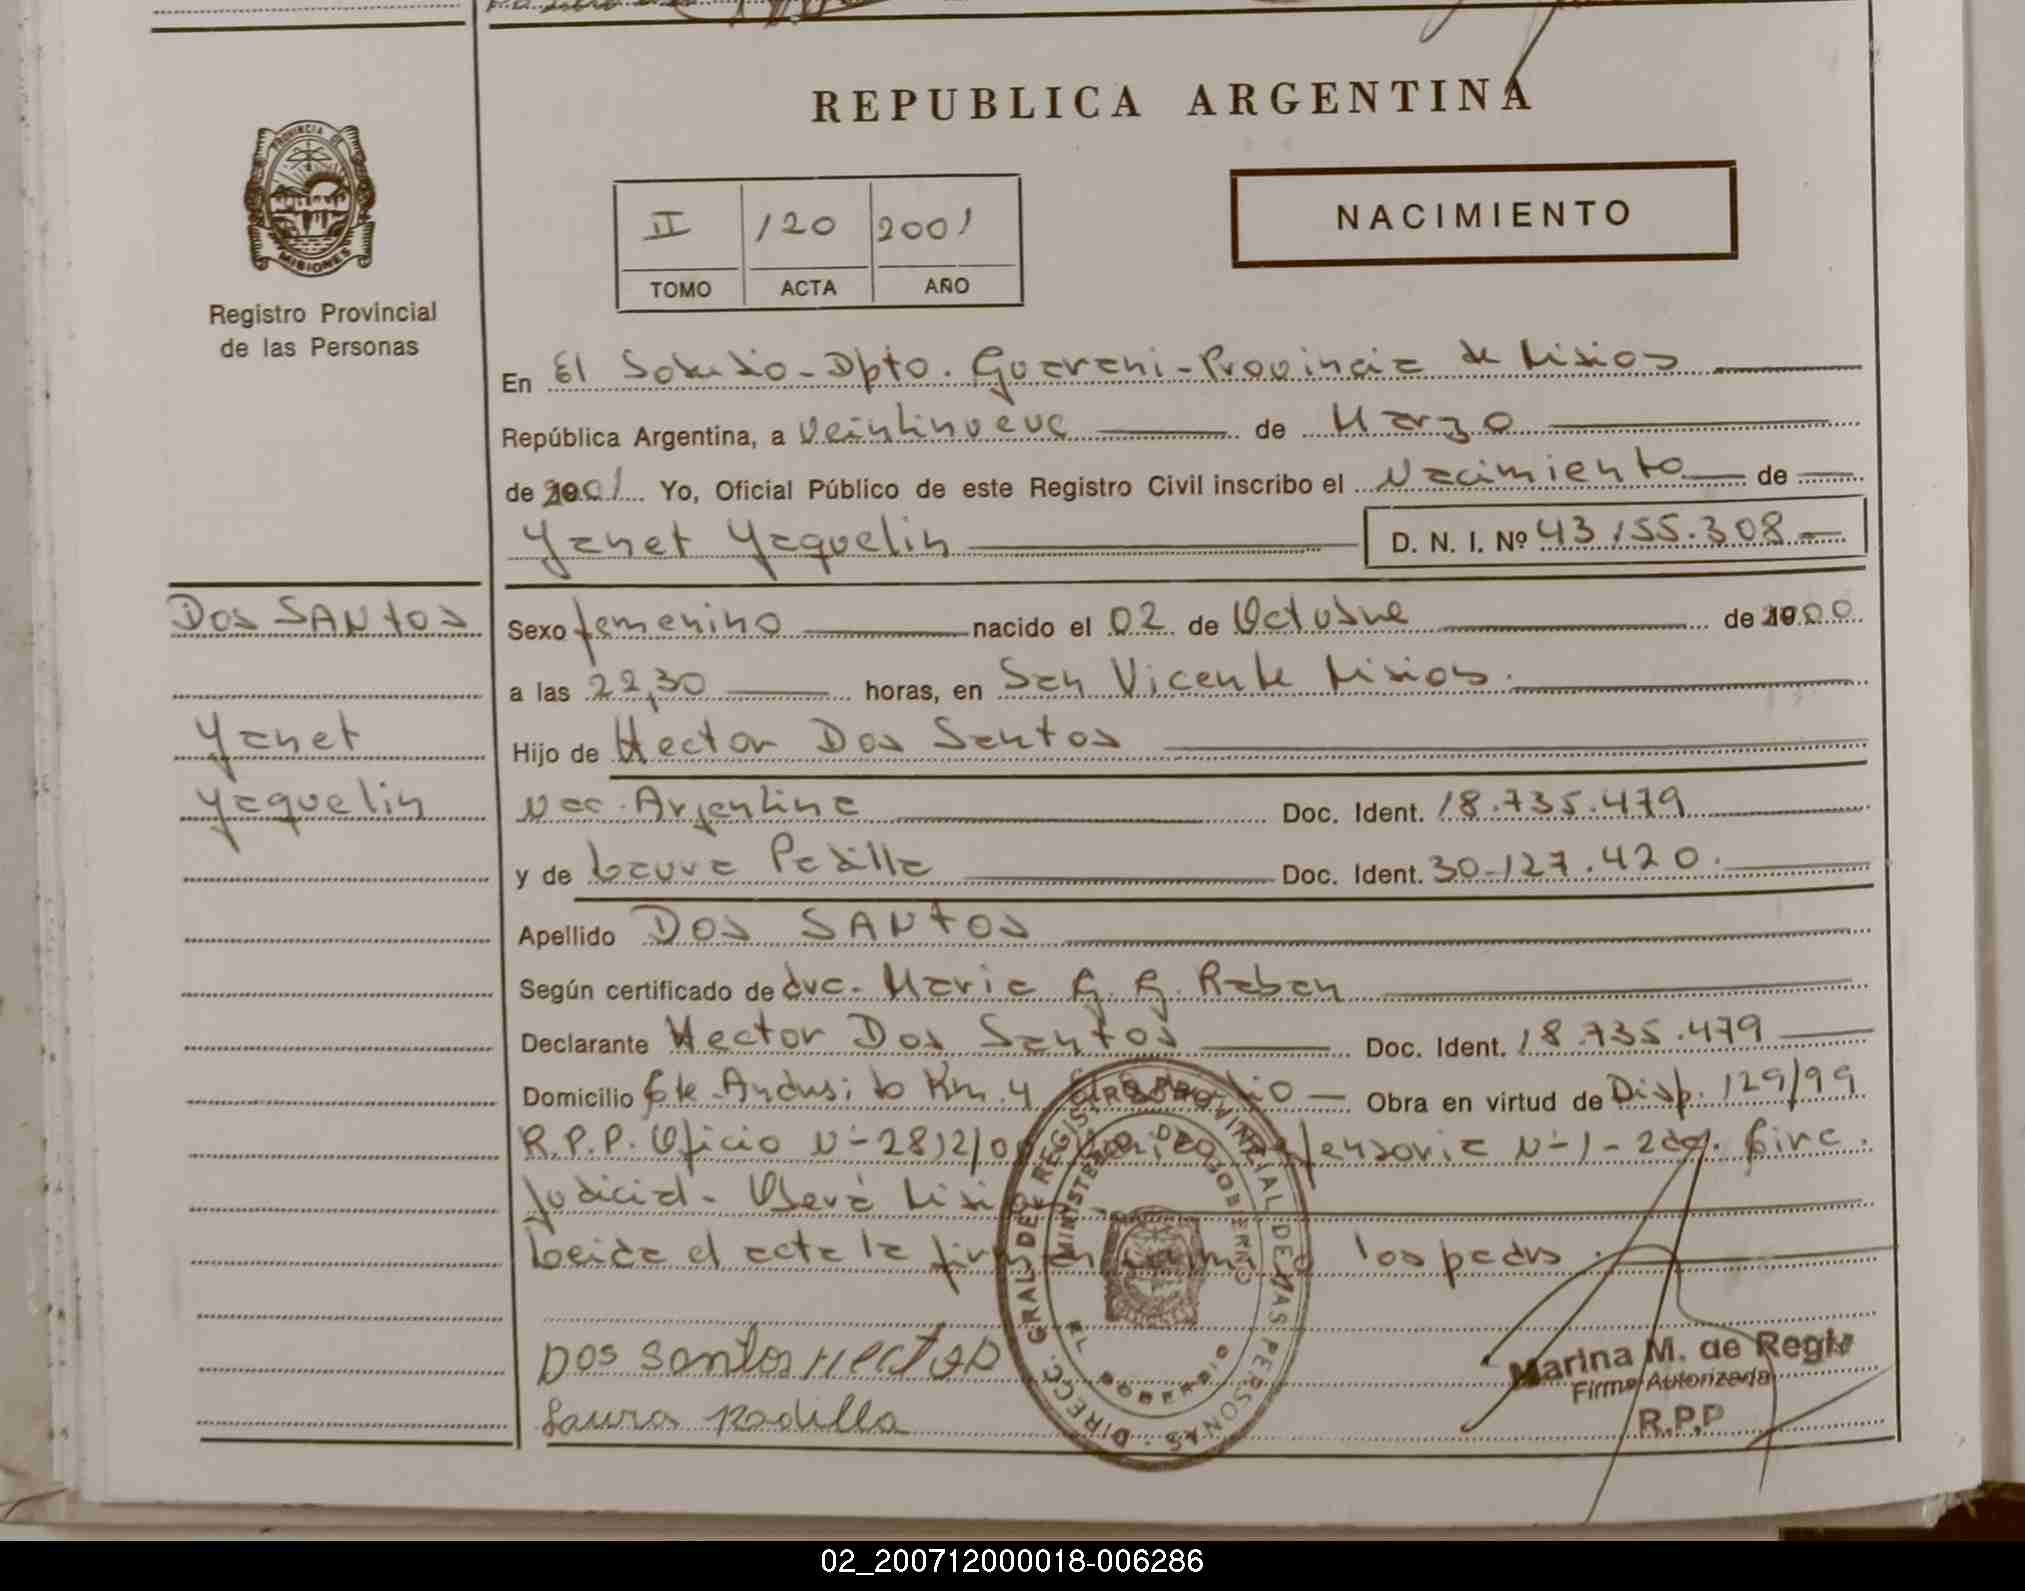 REPUBLICA ARGENTINA
PROVINCIA DE
MISIONES
Registro Provincial
de las Personas
II 120 2001
TOMO ACTA AÑO
NACIMIENTO
En El Soberbio - Dpto. Guarani - Provincia de Misiones
República Argentina, a veintinueve de Marzo
de 2001 Yo, Oficial Público de este Registro Civil inscribo el Nacimiento de
Yanet Yaquelin D. N. I. Nº 43.155.308
DOS SANTOS
Sexo femenino nacido el 02 de Octubre de 2000
a las 22,30 horas, en San Vicente Misiones.
Yanet
Hijo de Hector Dos Santos
Yaquelin
Nac. Argentina Doc. Ident. 18.735.479
y de Laura Padilla Doc. Ident. 30.127.420.
Apellido DOS SANTOS
Según certificado de dra. Maria G. G. Raban
Declarante Hector Dos Santos Doc. Ident. 18.735.479
Domicilio Cte. Andresito Km. 4 Obra en virtud de Disp. 129/99
R.P.P. Oficio Nº 2812/00 Defensoria Nº 1 - 2da. Circ.
Judicial - Oberá
Leida el acta la firman los padres.
Dos Santos Hector
Laura Padilla
DIRECC. GRAL. DEL REGISTRO PROVINCIAL DE LAS PERSONAS
MINISTERIO DE GOBIERNO
EL SOBERBIO
Marina M. de Regis
Firma Autorizada
R.P.P
02_200712000018-006286